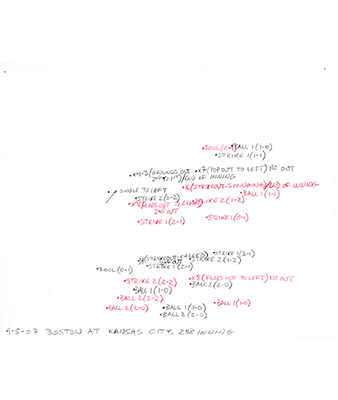 •FOUL (0-1) •BALL 1 (1-0)
STRIKE 1 (1-1)
•x4-3 (GROUNDS OUT •x7 (POP OUT TO LEFT) OUT
2ND TO 1ST)/END OF INNING
•x(STRIKEOUT-SWINGING)/END OF INNING
• SINGLE TO LEFT •BALL 1 (1-1)
•STRIKE 2 (0-2) STRIKE 2 (1-2)
2ND OUT
•STRIKE 1 (2-1) •STRIKE 1 (0-1)
(STRIKEOUT-CALLED) •STRIKE 1 (2-1)
•STRIKE 2 (1-2)
•FOUL (0-1) •STRIKE 1 (2-1)
•STRIKE 2 (2-2) •x8 (FLIES OUT TO LEFT) OUT
•BALL 2 (2-0)
•BALL 1 (1-0)
•BALL 2 (2-2)
•BALL 2 (2-0) •BALL 1 (1-0) •BALL 1 (1-0)
•BALL 2 (2-0)
4-5-07 BOSTON AT KANSAS CITY, 2ND INNING